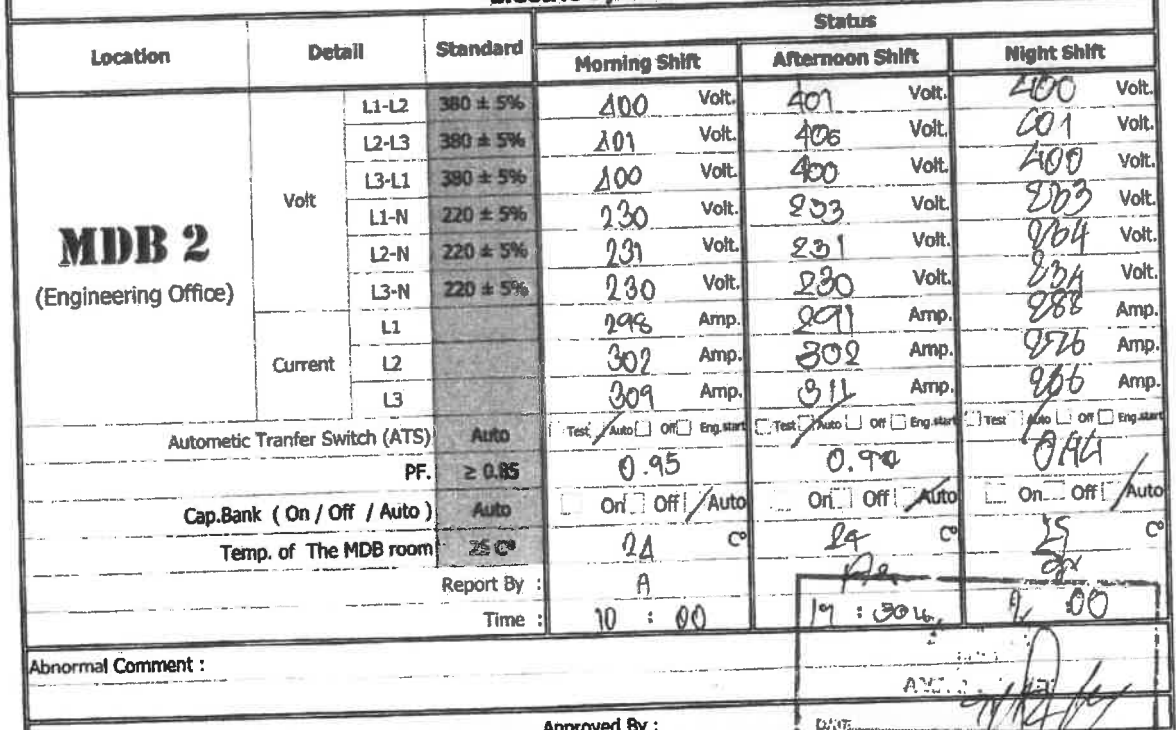 Status
Location Detail Standard Morning Shift Afternoon Shift Night Shift
MDB 2
(Engineering Office)
Volt
L1-L2 380 ± 5% 400 Volt. 401 Volt. 400 Volt.
L2-L3 380 ± 5% 401 Volt. 406 Volt. 401 Volt.
L3-L1 380 ± 5% 400 Volt. 400 Volt. 400 Volt.
L1-N 220 ± 5% 230 Volt. 233 Volt. Volt.
L2-N 220 ± 5% 231 Volt. 231 Volt. 234 Volt.
L3-N 220 ± 5% 230 Volt. 230 Volt. 234 Volt.
Current
L1 298 Amp. 291 Amp. 288 Amp.
L2 302 Amp. 302 Amp. 276 Amp.
L3 309 Amp. 311 Amp. 266 Amp.
Autometic Tranfer Switch (ATS) Auto Test Auto Off Eng.start Test Auto Off Eng.start Test Auto Off Eng.start
PF. ≥ 0.85 0.95 0.94
Cap.Bank ( On / Off / Auto ) Auto On Off Auto On Off Auto On Off Auto
Temp. of The MDB room 25 C° 24 C° 24 C° 25 C°
Report By : A
Time : 10 : 00 :00
Abnormal Comment :
Approved By :
DATE